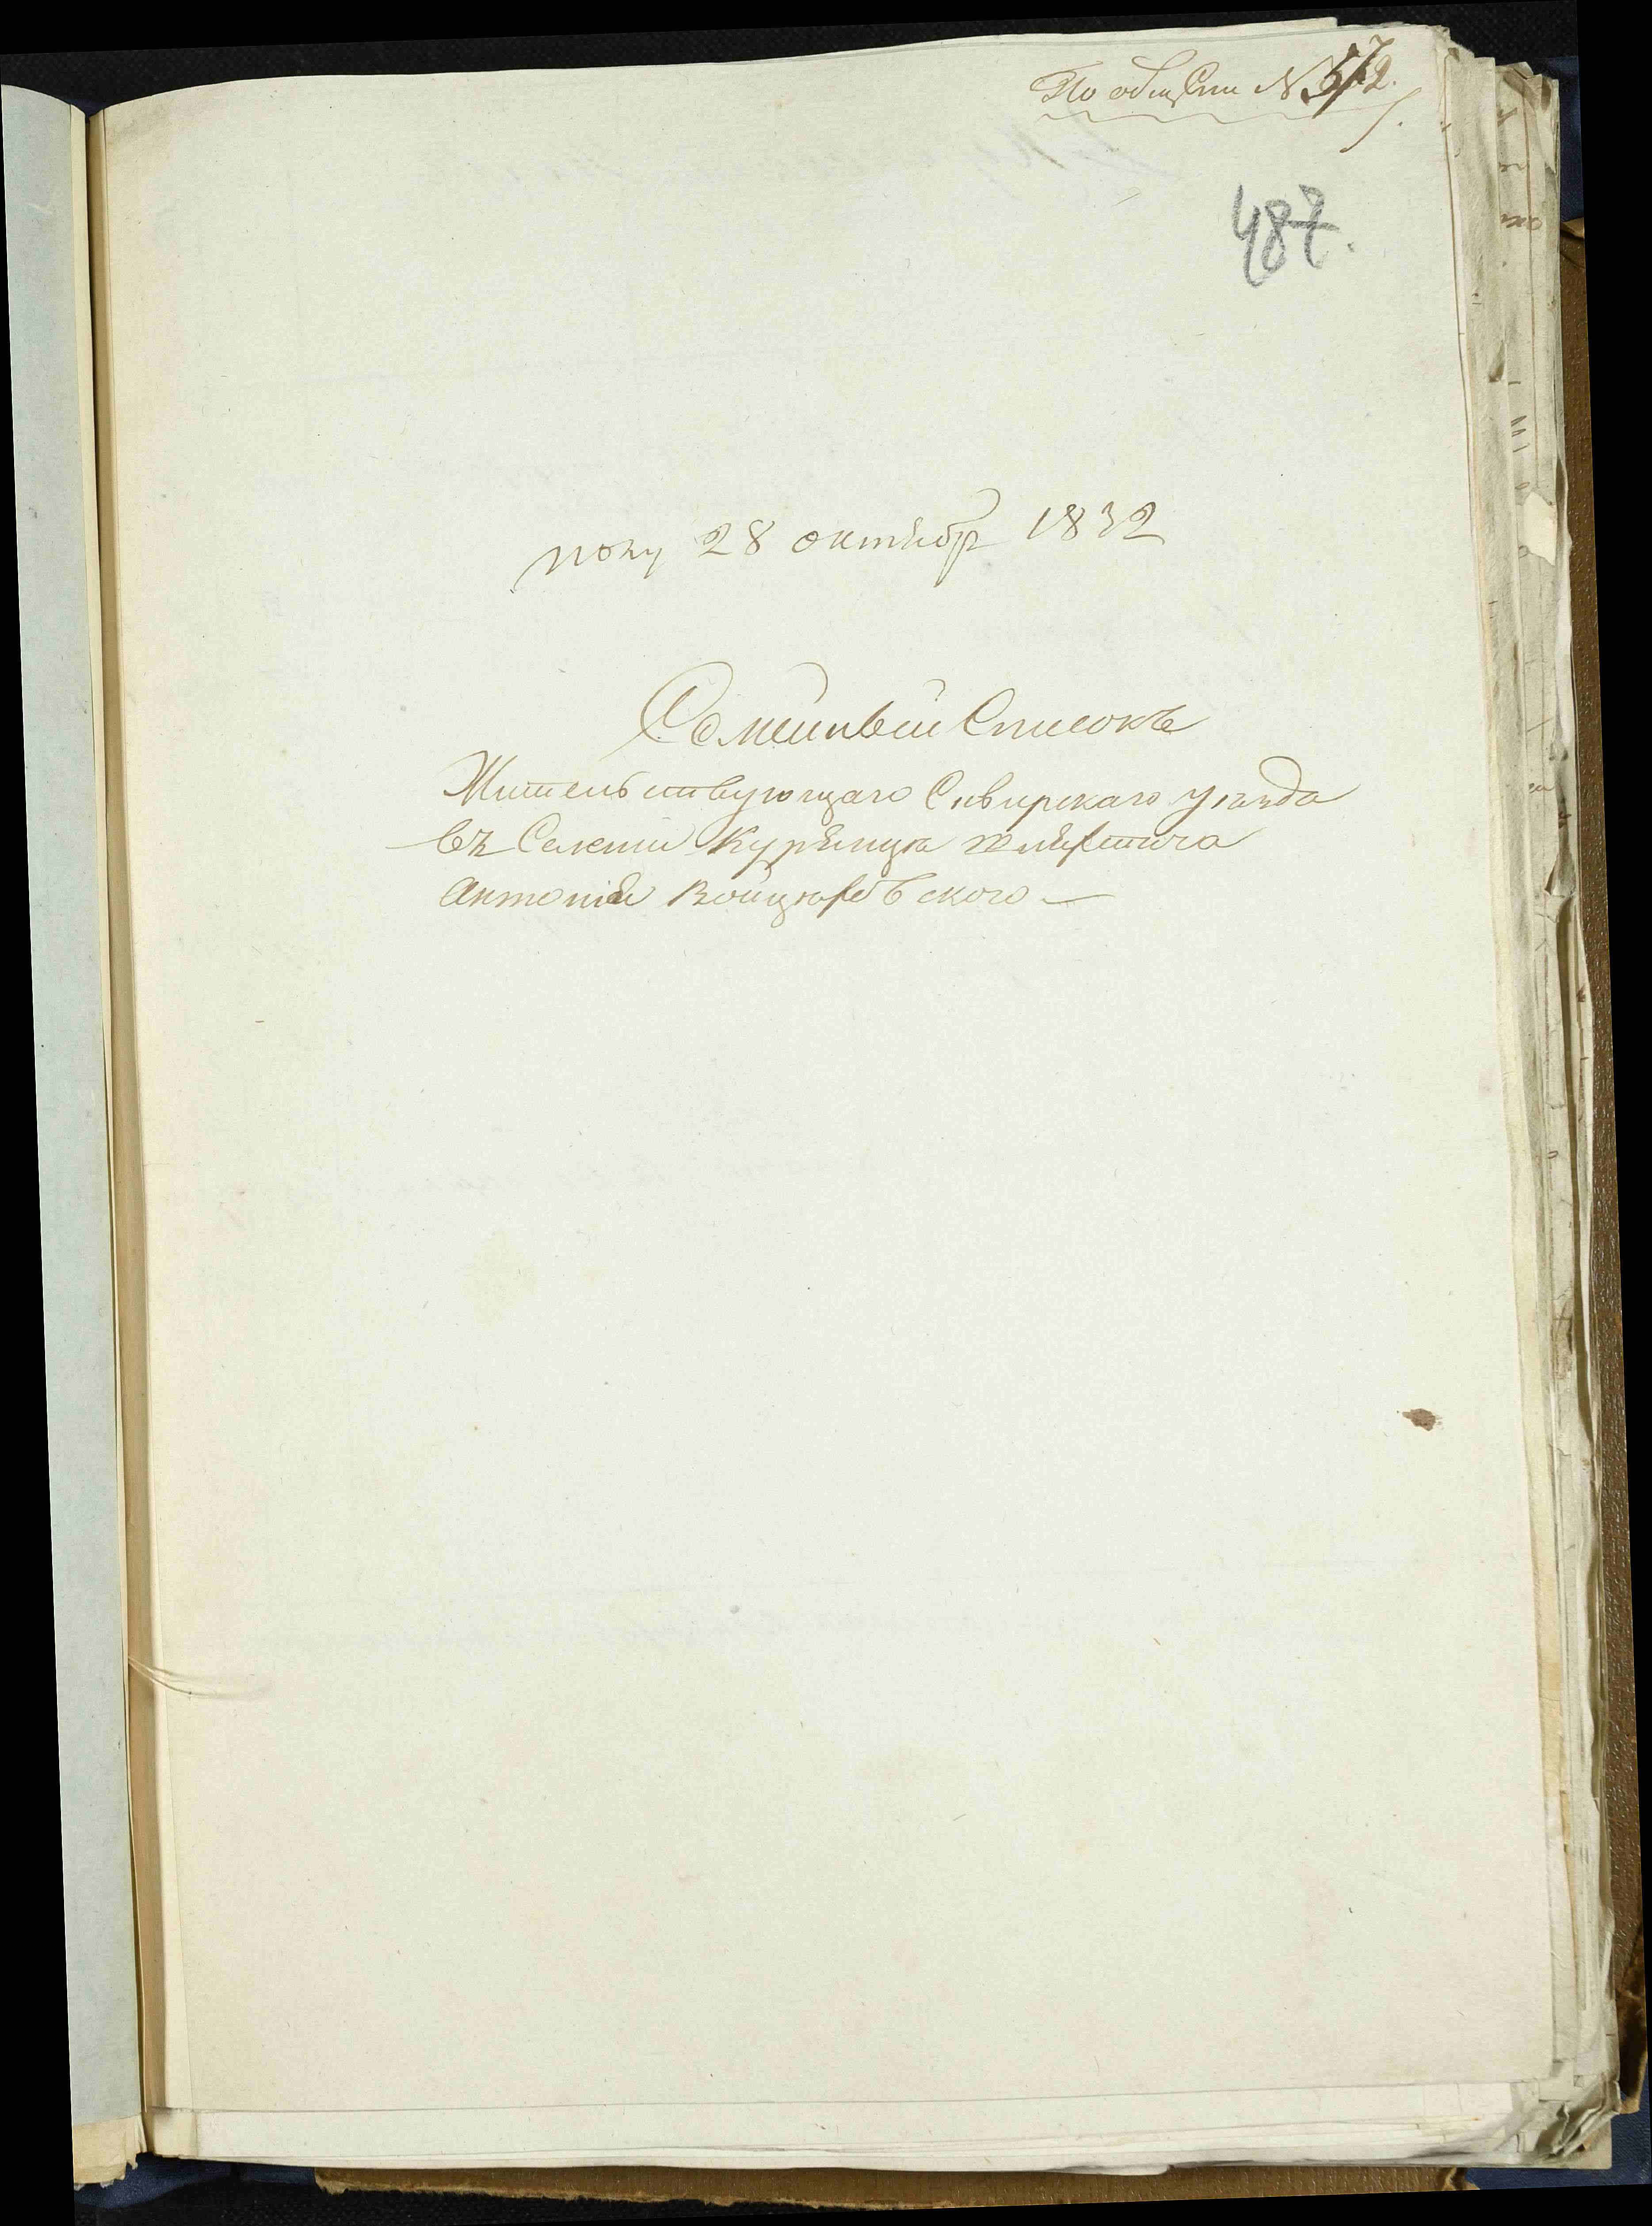 По общ Спи № 572.
487.
полу 28 октябр 1832
Семейный Списокъ
Жительствующаго Сквирскаго уезда
въ Селении Курянцах шляхтича
Антонія Войцеховского —